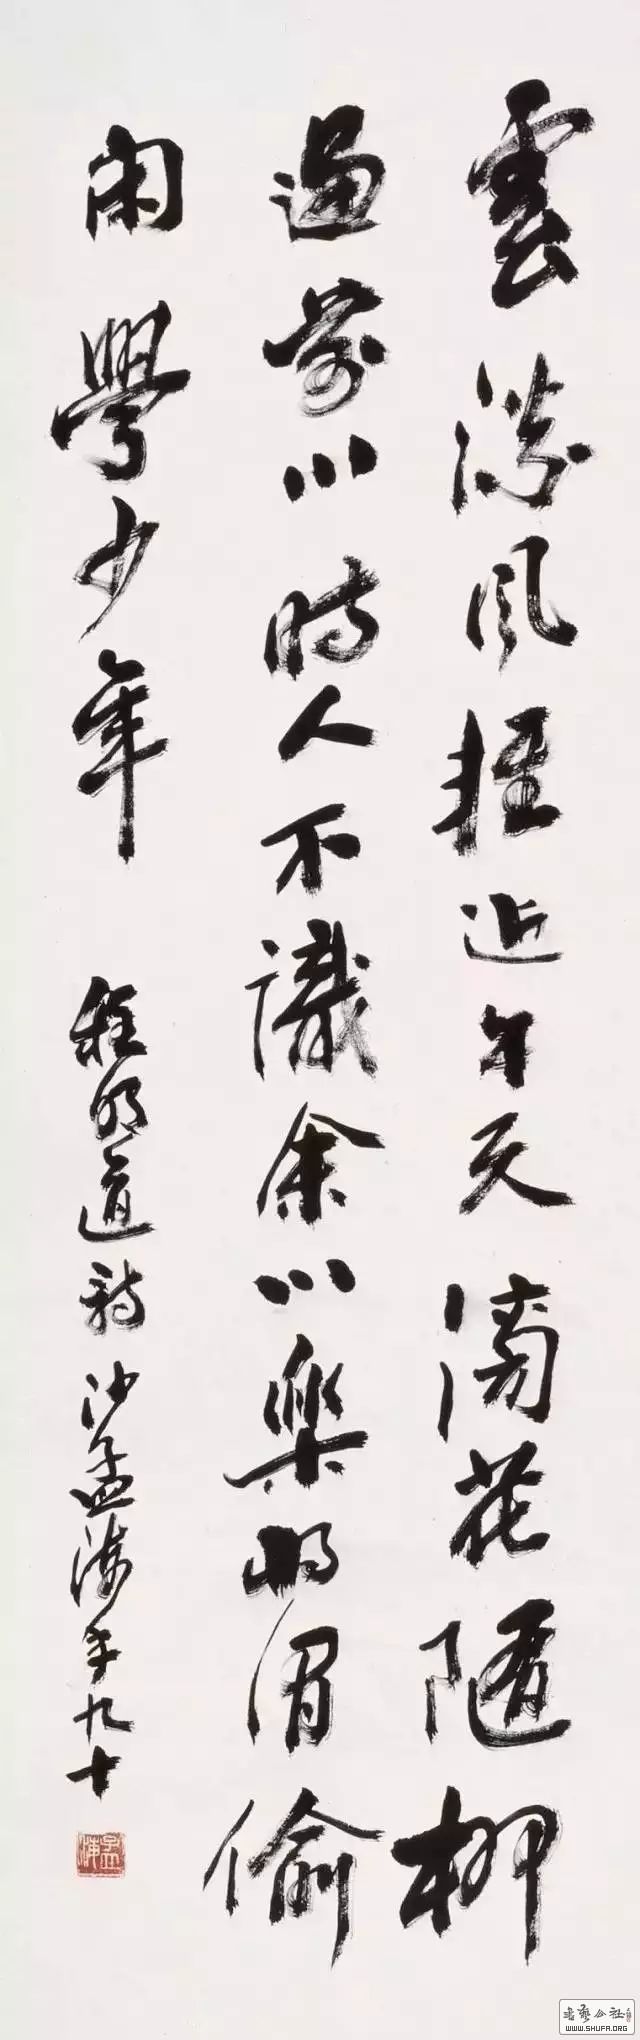 雲淡風輕近午天傍花隨柳
過前川時人不識余心樂將謂偷
閑學少年 程明道詩 沙孟海年九十
孟海
書藝公社
WWW.SHUFA.ORG